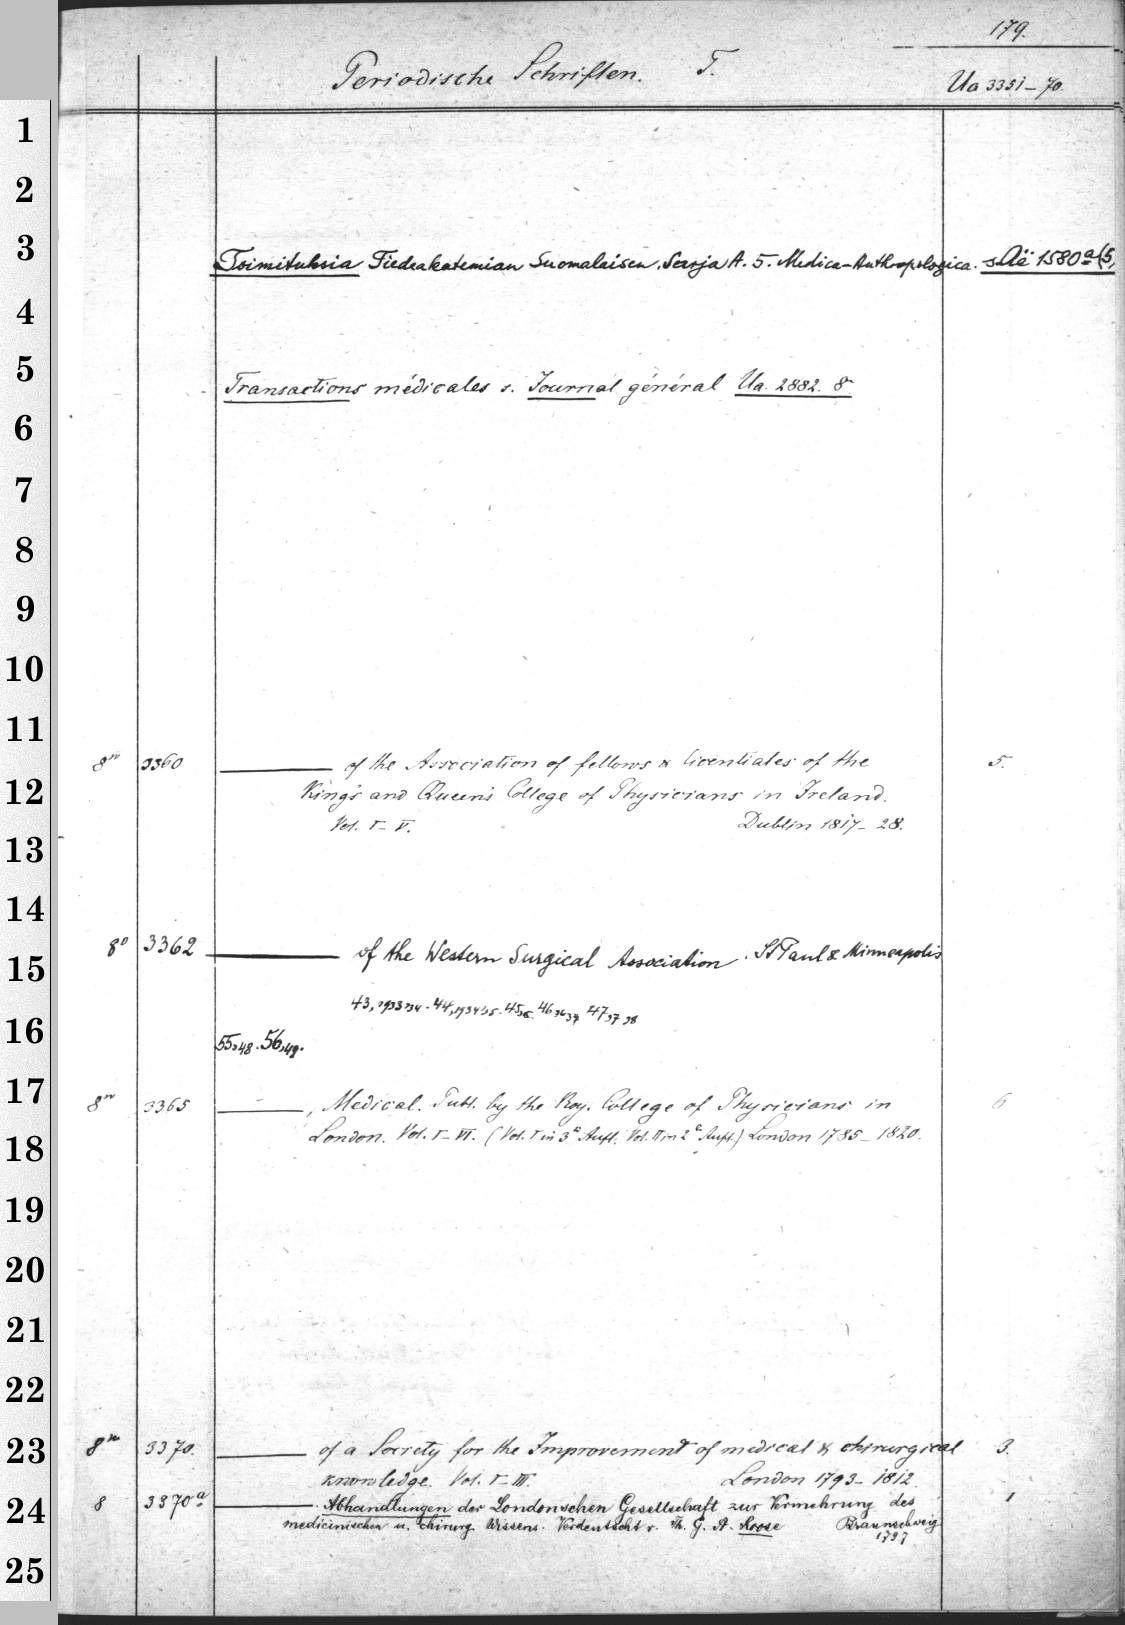 179.
Periodische Schriften. T.
Ua 3351-70.
1
2
3
Toimituksia Tiedeakatemian Suomalaisen. Sarja A. 5. Medica-Anthropologica. s. Aë 1580a(5)
4
5
Transactions médicales s. Journal général Ua. 2882. 8°
6
7
8
9
10
11
8m 3360 of the Association of fellows & licentiates of the 5.
12
King's and Queen's College of Physicians in Ireland.
Vol. I-V. Dublin 1817-28.
13
14
8° 3362 of the Western Surgical Association. St Paul & Minneapolis
15
43, 1933/34. 44, 1934/35. 45, 36. 46, 36/37 47, 37 38
16
55,48. 56,49.
17
8m 3365 , Medical. Publ. by the Roy. College of Physicians in 6
London. Vol. I-VI. (Vol. I in 3e Aufl. Vol. II in 2e Aufl.) London 1785-1820.
18
19
20
21
22
8m 3370. of a Society for the Improvement of medical & chirurgical 3.
23
knowledge. Vol. I-III. London 1793-1812.
8 3370a. Abhandlungen der Londonschen Gesellschaft zur Vermehrung des 1
24
medicinischen u. chirurg. Wissens. Verdeutscht v. Th. G. A. Roose Braunschweig
1797
25